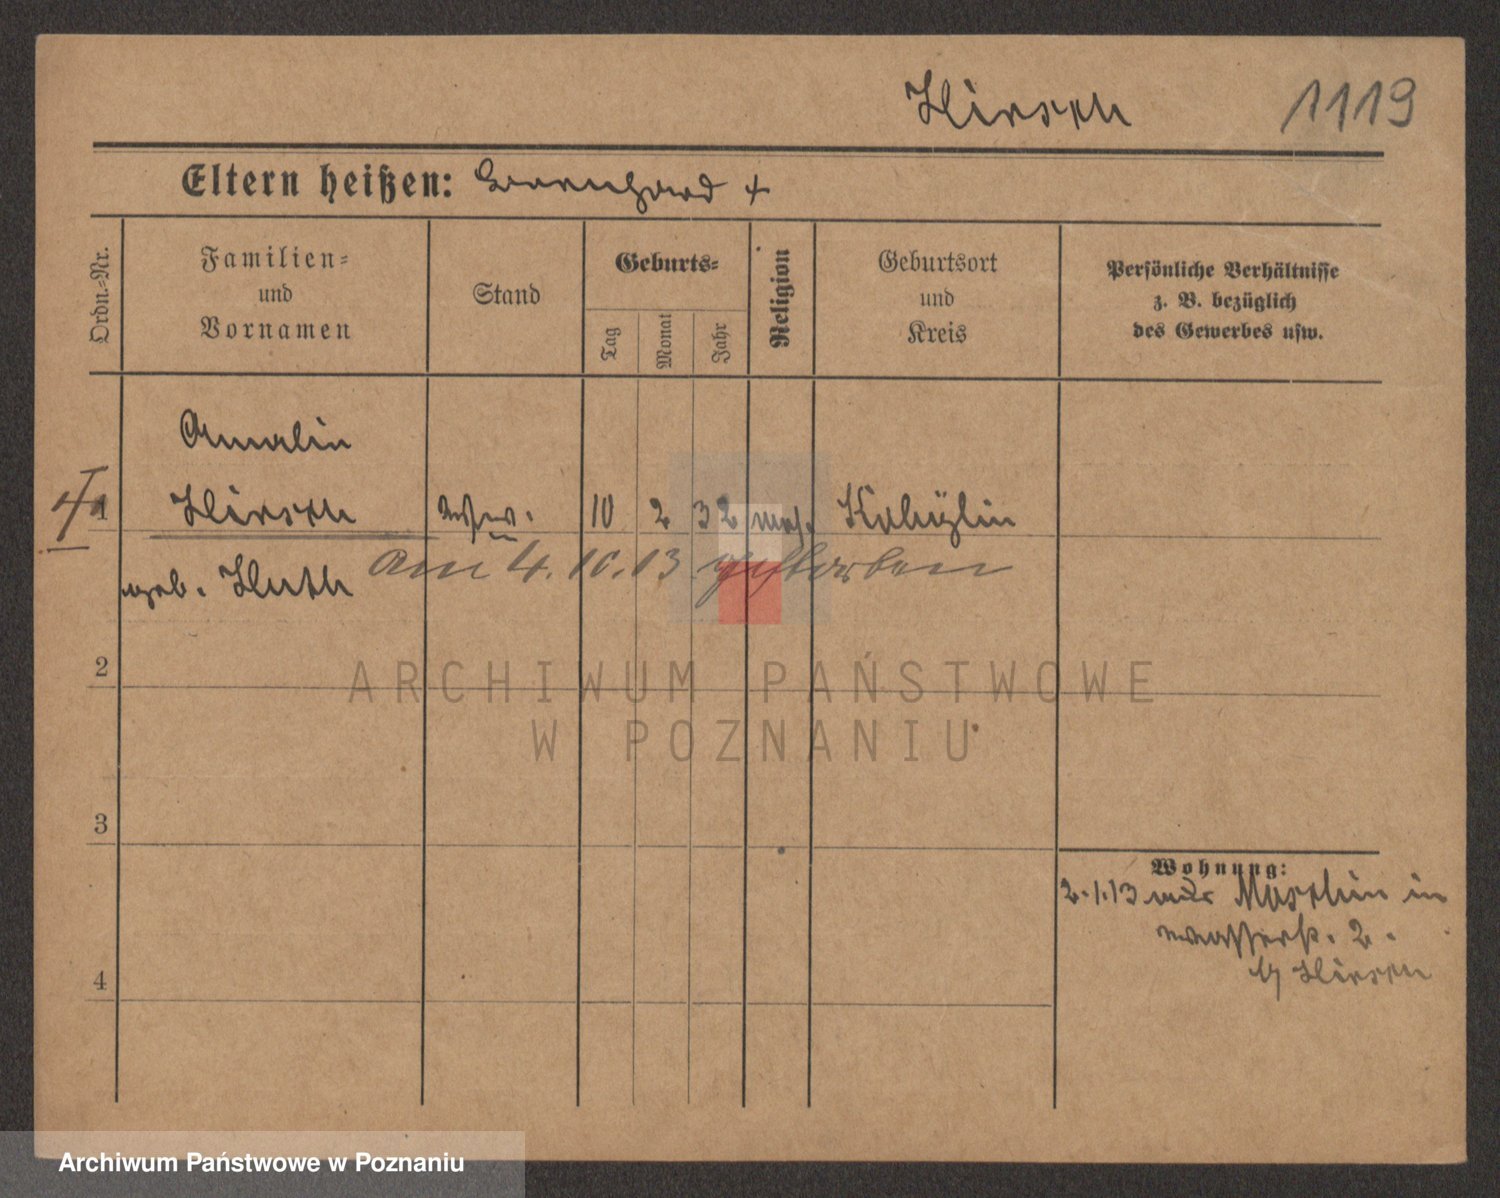 Hirsch 1119
Eltern heißen: Bernhard +
Ordn.-Nr.
Familien- und Vornamen
Stand
Geburts-
Tag
Monat
Jahr
Religion
Geburtsort und Kreis
Persönliche Verhältnisse
z. B. bezüglich
des Gewerbes usw.
Amalie
1 Hirsch Wwe. 10 2 32 mos.
Am 4.10.13 gestorben
geb. Huth
2
ARCHIWUM PAŃSTWOWE
W POZNANIU
3
Wohnung:
2.1.13 aus in
Wasserstr. 2.
b/ Hirsch
4
Archiwum Państwowe w Poznaniu